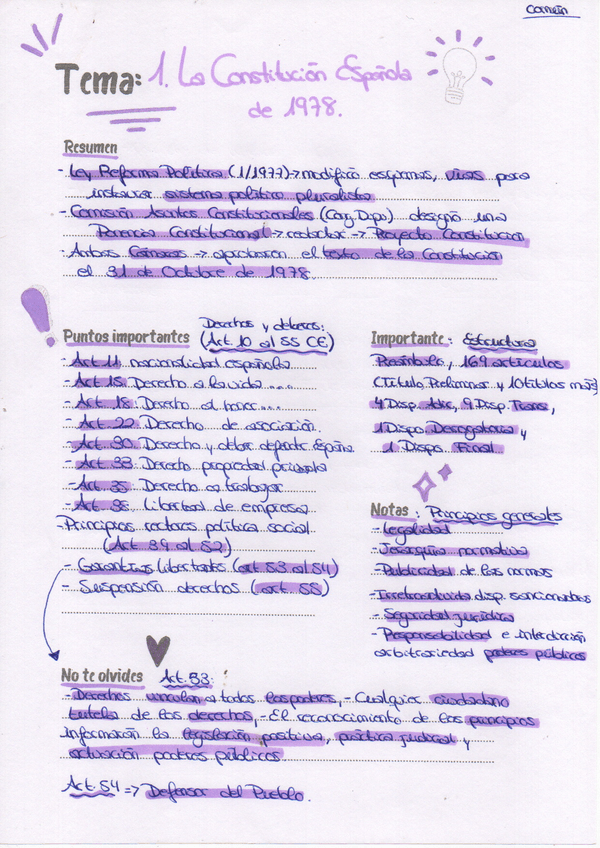 Común
Tema: 1. La Constitución Española
de 1978.
Resumen
- Ley Reforma Política (1/1977) → modificó esquemas, vías para
instaurar sistema político pluralista
- Comisión Asuntos Constitucionales (Cong. Dipo) designó una
Ponencia Constitucional → redactar → Proyecto Constitución
- Ambas Cámaras → aprobaron el texto de la Constitución
el 31 de Octubre de 1978.
Puntos importantes
Derechos y deberes:
(Art. 10 al 55 CE)
- Art. 11 nacionalidad española
- Art. 15: Derecho a la vida...
- Art. 18: Derecho al honor...
- Art. 22: Derecho de asociación.
- Art. 30: Derecho y deber defender España
- Art. 33: Derecho propiedad privada
- Art. 35: Derecho a trabajar
- Art. 38: Libertad de empresa
- Principios rectores política social
(Art 39 al 52)
- Garantías libertades (art 53 al 54)
- Suspensión derechos (art. 55)
Importante: Estructura
Preámbulo, 169 artículos
(Título Preliminar y 10 títulos más)
4 Disp. Adic, 9 Disp Trans,
1 Dispo Derogatoria y
1 Dispo. Final
Notas: Principios generales
- Legalidad
- Jerarquía normativa
- Publicidad de las normas
- Irretroactividad disp. sancionadoras
- Seguridad jurídica
- Responsabilidad e interdicción
arbitrariedad poderes públicos
No te olvides Art. 53:
- Derechos vinculan a todos los poderes, - Cualquier ciudadano
tutela de los derechos, - El reconocimiento de los principios
informarán la legislación positiva, práctica judicial y
actuación poderes públicos.
Art. 54 => Defensor del Pueblo.